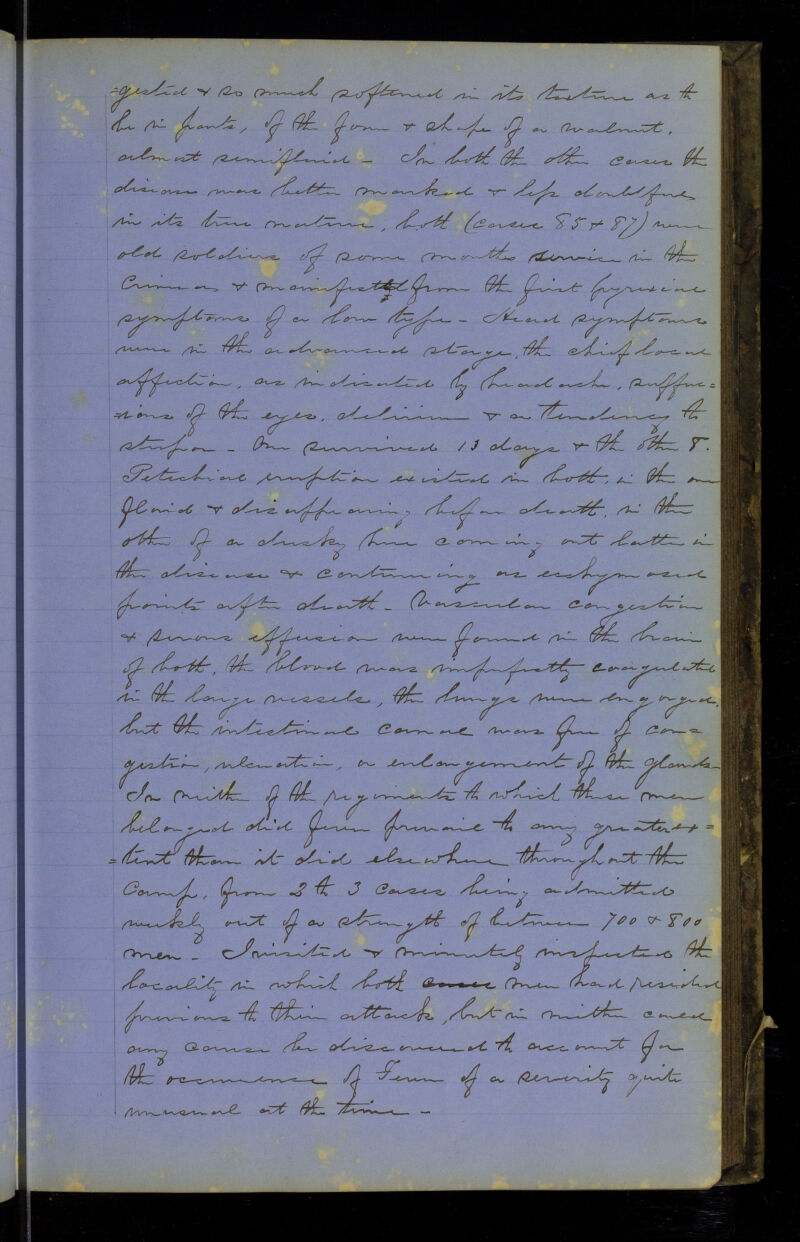 =gested & so much softened in its texture as to
be in parts, of the form & shape of a walnut,
almost semifluid - In both the other cases the
disease was better marked & less doubtful
in its true nature, both (cases 85 & 87) were
old soldiers of some months service in the
Crimea & manifested from the first pyrexial
symptoms of a low type - Head symptoms
were in the advanced stage, the chief local
affection, as indicated by headache, suffu=
=sions of the eyes, delirium & a tendency to
stupor - One survived 13 days & the other 8.
Petechial eruption existed in both, in the one
florid & disappearing before death, in the
other of a dusky hue coming out latter in
the disease & continuing as ecchymosed
points after death - Vascular congestion
& serous effusion were found in the brain
of both, the blood was imperfectly coagulated
in the large vessels, the lungs were engorged,
but the intestinal canal was free of con=
gestion, ulceration, or enlargement of the glands -
In neither of the regiments to which these men
belonged did fever prevail to any greater ex=
=tent than it did elsewhere throughout the
Camp, from 2 to 3 cases being admitted
weekly out of a strength of between 700 & 800
men - I visited & minutely inspected the
locality in which both cases men had resided
previous to their attacks, but in neither could
any cause be discovered to account for
the occurrence of Fever of a severity quite
unusual at the time -